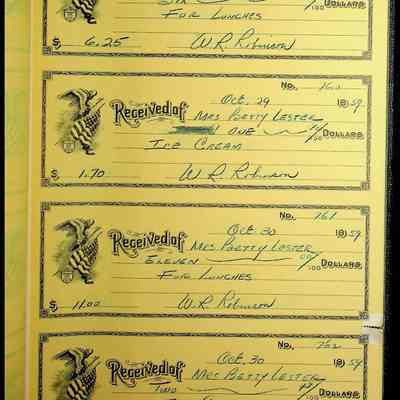 Six /100 DOLLARS
FOR LUNCHES
$ 6.25 W.R. Robinson
No. 160
Oct. 29 1959
Received of MRS BETTY LESTER
ONE 70/100 DOLLARS
ICE CREAM
$ 1.70 W.R. Robinson
No. 161
Oct 30 1959
Received of MRS BETTY LESTER
ELEVEN 00/100 DOLLARS
FOR LUNCHES
$ 11.00 W.R. Robinson
No. 162
Oct. 30 1959
Received of MRS BETTY LESTER
TWO DOLLARS